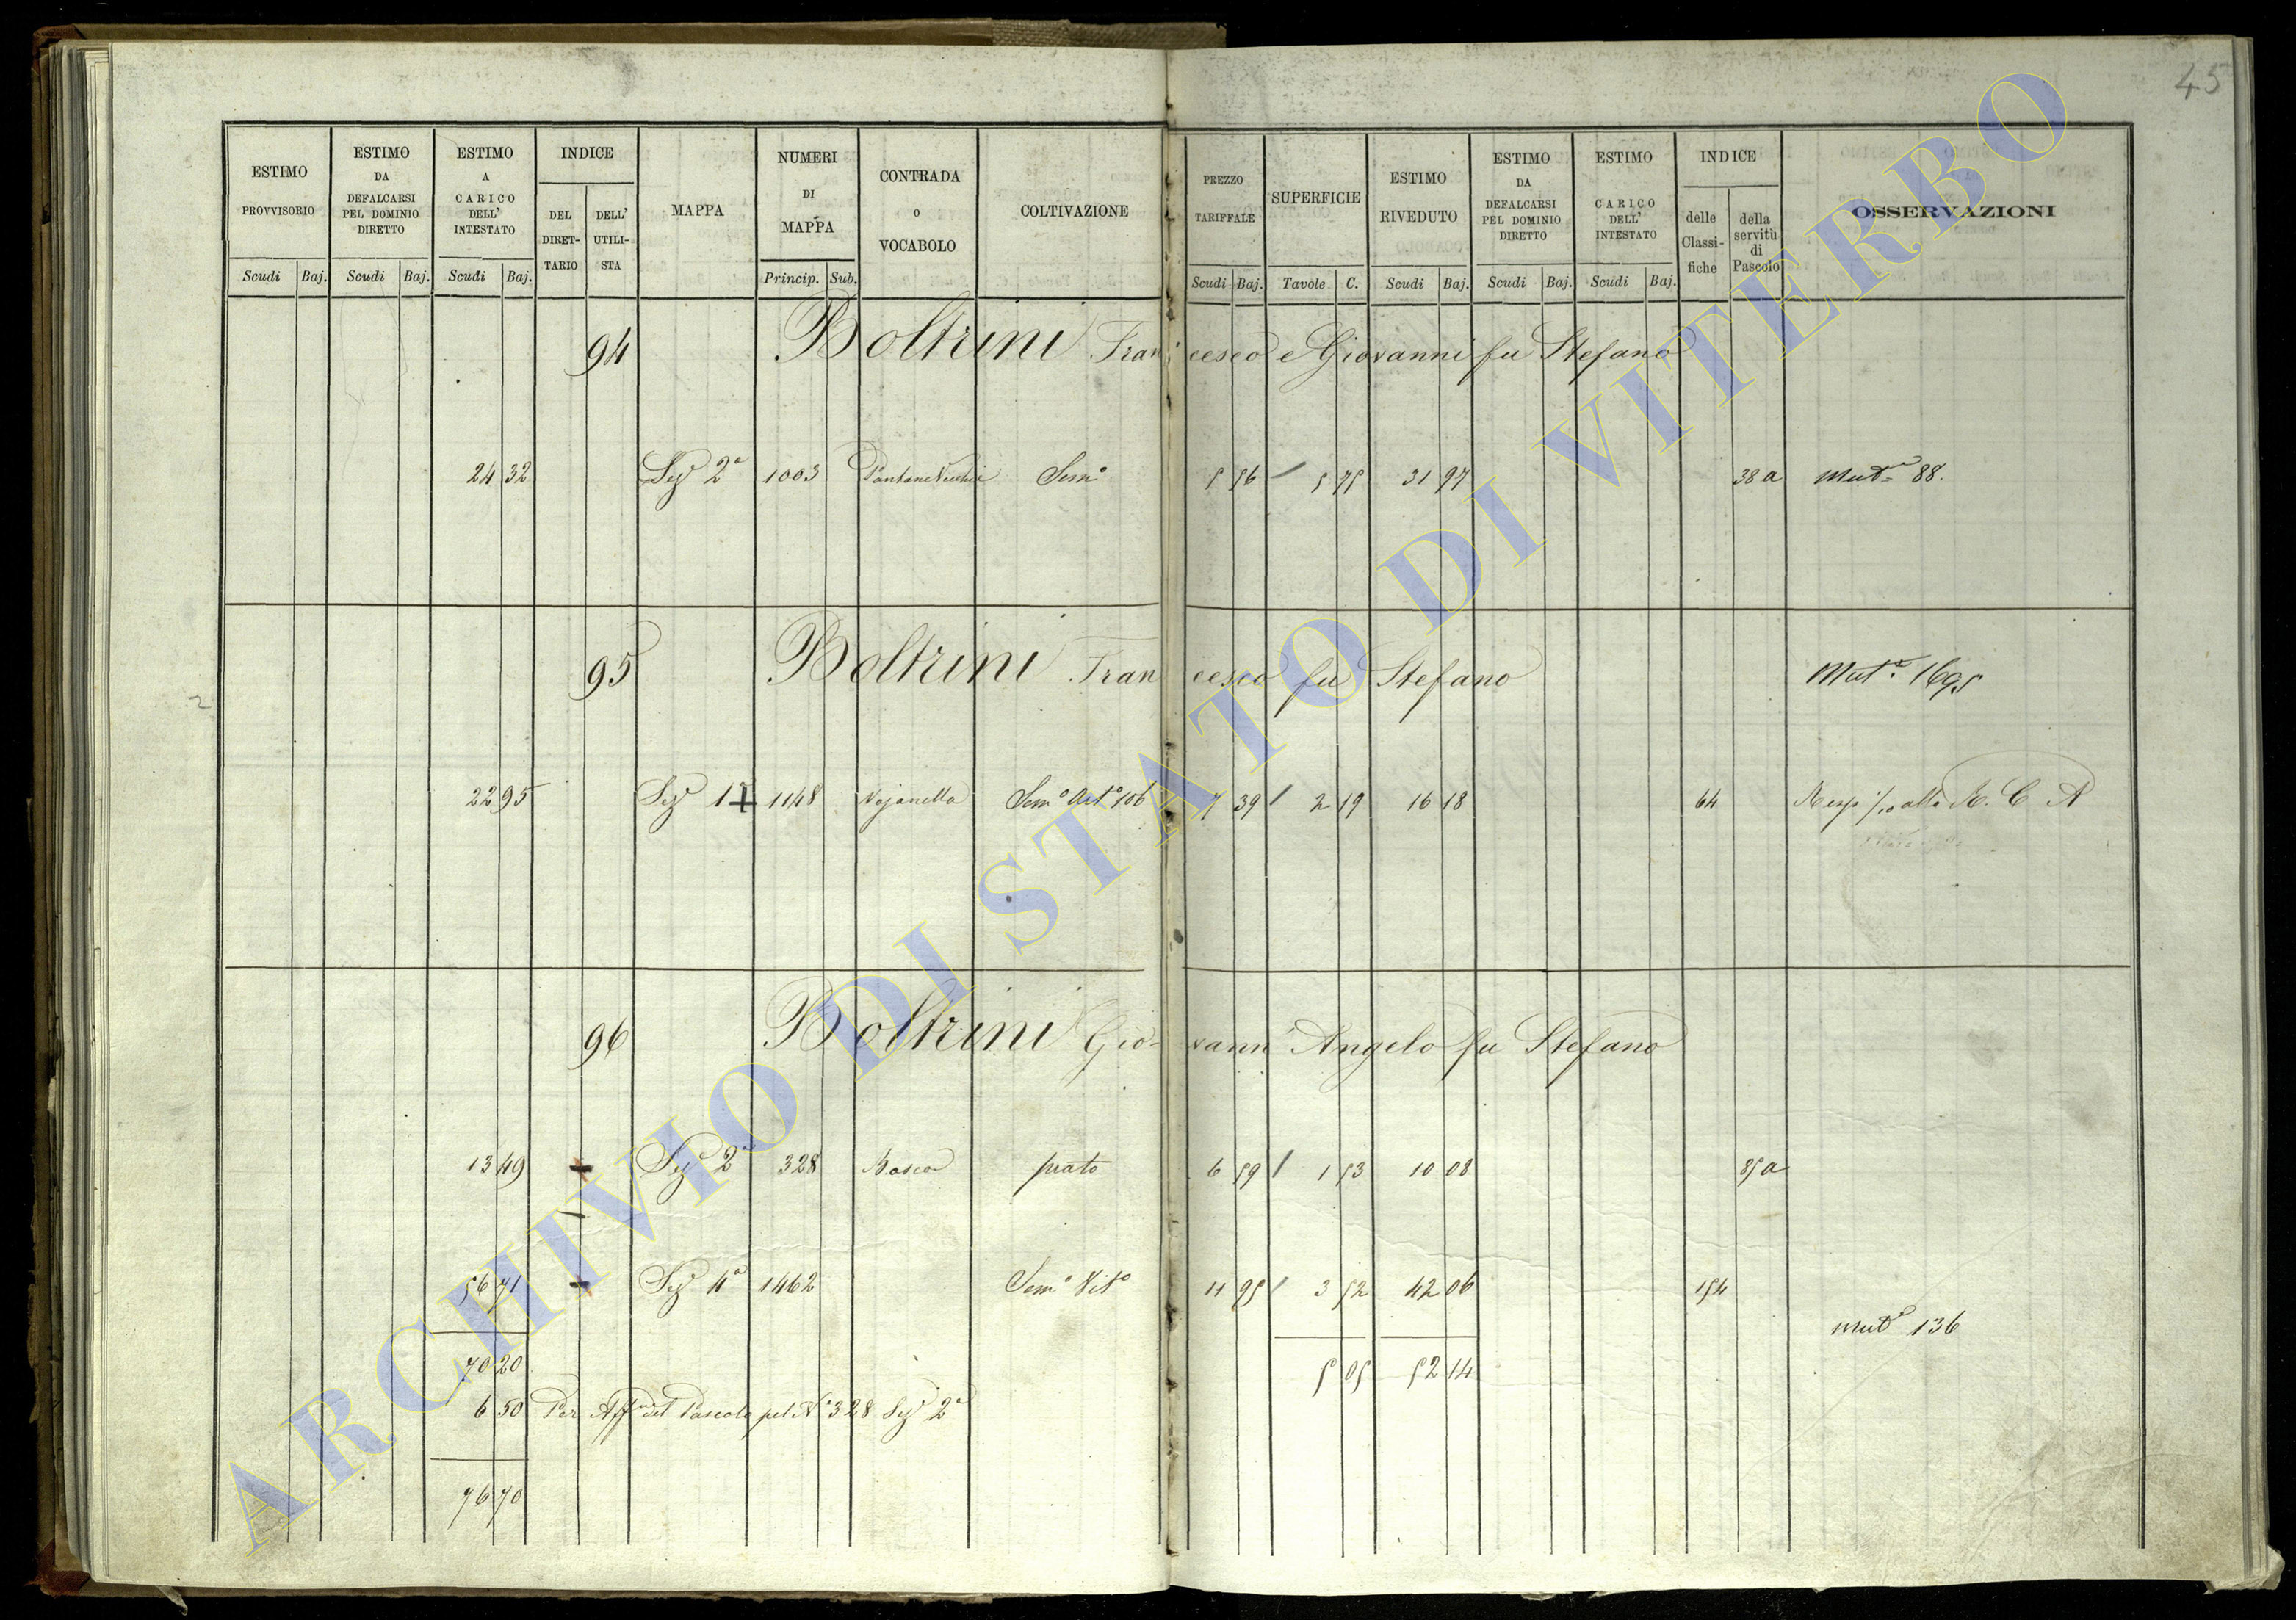 45
ESTIMO PROVVISORIO
Scudi Baj.
ESTIMO DA DEFALCARSI PEL DOMINIO DIRETTO
Scudi Baj.
ESTIMO A CARICO DELL' INTESTATO
Scudi Baj.
INDICE
DEL DIRET-TARIO
DELL' UTILI-STA
MAPPA
NUMERI DI MAPPA
Princip. Sub.
CONTRADA O VOCABOLO
COLTIVAZIONE
PREZZO TARIFFALE
Scudi Baj.
SUPERFICIE
Tavole C.
ESTIMO RIVEDUTO
Scudi Baj.
ESTIMO DA DEFALCARSI PEL DOMINIO DIRETTO
Scudi Baj.
ESTIMO A CARICO DELL' INTESTATO
Scudi Baj.
INDICE
delle Classi-fiche
della servitù di Pascolo
OSSERVAZIONI
94 Boltrini Francesco e Giovanni fu Stefano
24 32 Sez 2a 1003 Pantane Vecchie Semo 5 56 5 75 31 97 38 a Muta 88.
95 Boltrini Francesco fu Stefano Muta 1695
22 95 Sez 1a 1148 Nojanella Semo Arto 106 7 39 2 19 16 18 64 Resp 1/10 alla R. C. A
96 Boltrini Giovann Angelo fu Stefano
13 49 Sez 2a 328 Bosco prato 6 59 1 53 10 08 85 a
56 71 Sez 4a 1462 Semo Vito 11 95 3 52 42 06 154
Muta 136
70 20 5 05 52 14
6 50 Per Affne del Pascolo pel No 328 Sez 2a
76 70
ARCHIVIO DI STATO DI VITERBO